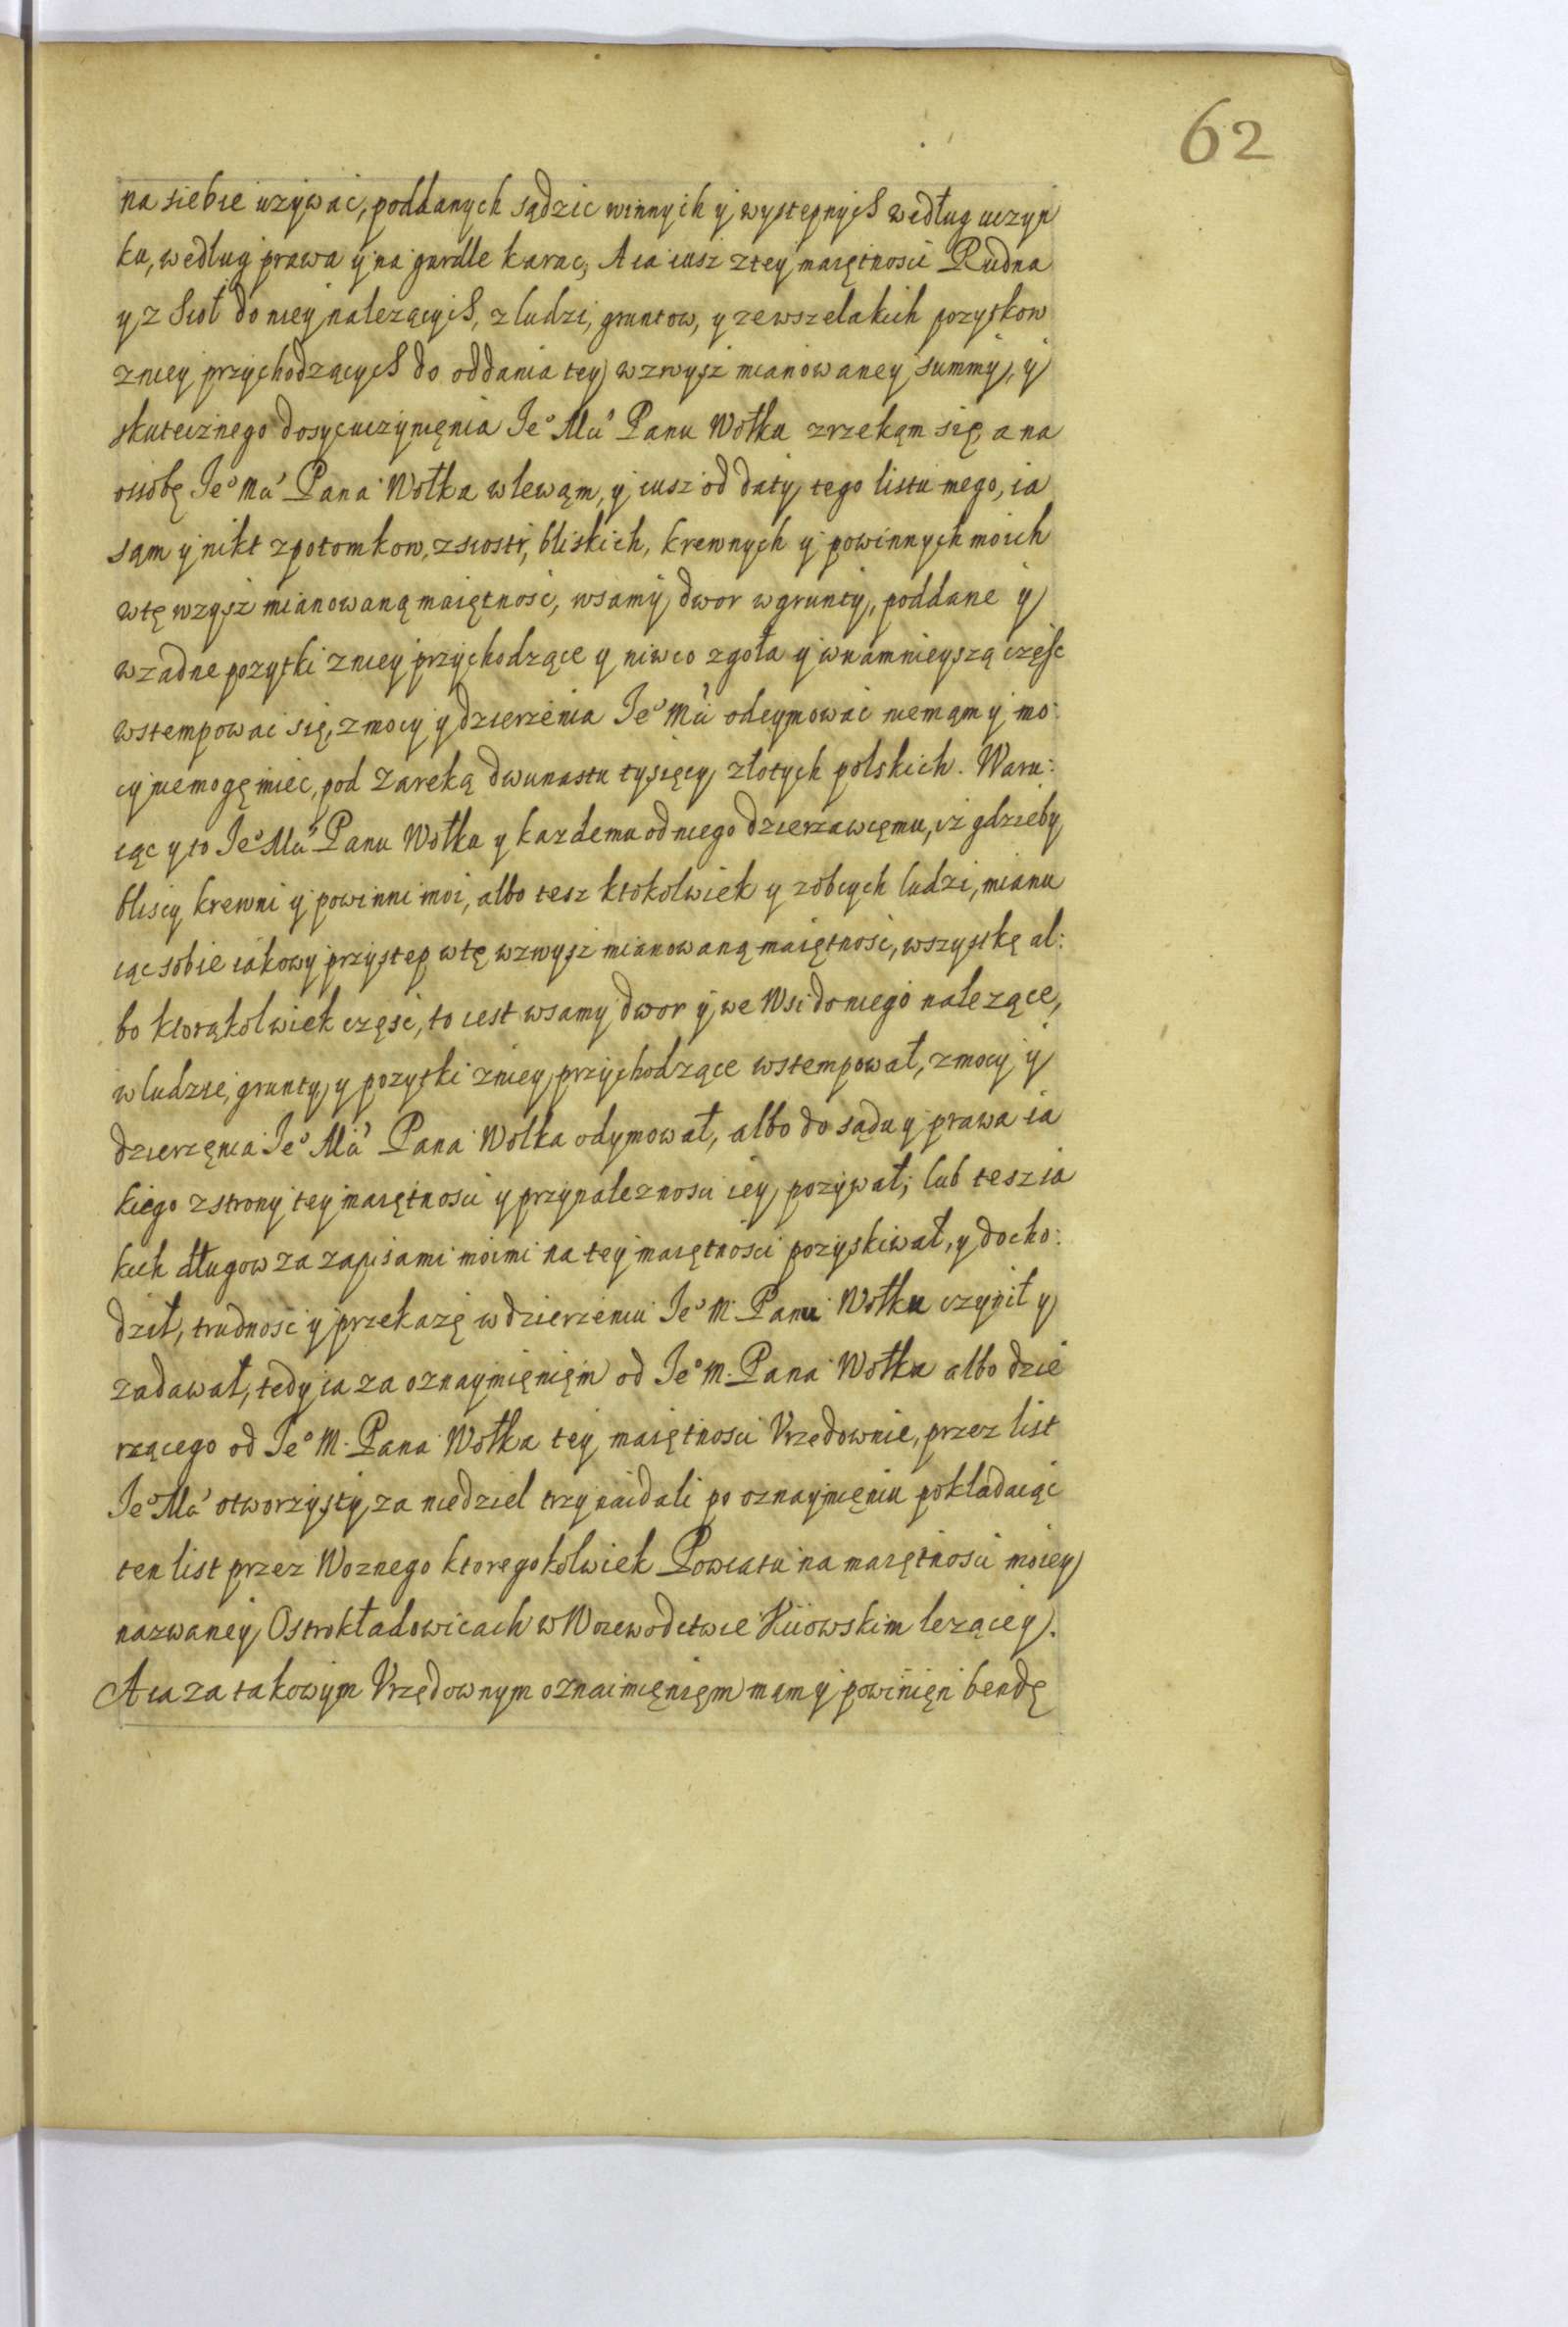 62
na siebie uzywać, poddanych sądzic winnych y występnych według uczyn
ku, według prawa y na gardle karac, A ia iusz z tey maiętnosci Rudna
y z Sioł do niey nalezących, z ludzi, gruntow, y ze wszelakich pozytkow
z niey przychodzących do oddania tey wzwysz mianowaney summy, y
skutecznego dosycuczynięnia Ieº Mći Panu Wołku zrzekąm się a na
ossobę Ieº Mći Pana Wołka wlewąm, y iusz od daty tego listu mego, ia
sąm y nikt z potomkow, z siostr, bliskich, krewnych y powinnych moich
w tę wzysz mianowaną maiętnosc, w samy dwor w grunty, poddane y
w zadne pozytki z niey przychodzące y niwco zgoła y w namnieyszą częsc
wstempowac się, z mocy y dzierzenia Ieº Mći odeymowac niemąm y mo:
cy niemogę miec, pod zareką dwunastu tysięcy złotych polskich. Waru:
iąc y to Ieº Mći Panu Wołku y kazdemu od niego dzierzawcęmu, iz gdzieby
bliscy krewni y powinni moi, albo tesz ktokolwiek y z obcych ludzi, mianu
iąc sobie iakowy przystep w tę wzwysz mianowaną maiętnosc, wszystkę al:
bo ktorąkolwiek częsc, to iest w samy dwor y we Wsi do niego nalezące,
w ludzie, grunty, y pozytki z niey przychodzące wstempował, z mocy y
dzierzęnia Ieº Mći Pana Wolka odymował, albo do sądu y prawa ia
kiego z strony tey maiętnosci y przynaleznosci iey pozywał, lub tesz ia
kich długow za zapisami moimi na tey maiętnosci pozyskiwał, y docho:
dził, trudnosc y przekazę w dzierzeniu Ieº M. Panu Wołku czynił y
zadawał, tedy ia za oznaymięnięm od Ieº M. Pana Wołka albo dzie
rzącego od Ieº M. Pana Wołka tey maiętnosci Vrzędownie, przez list
Ieº Mći otworzysty, za niedziel trzy naidali po oznaymięniu pokładaiąc
ten list przez Woznego ktoregokolwiek Powiatu na maiętnosci moiey
nazwaney Ostrokładowicach w Woiewodctwie Kiiowskim lezącey.
A ia za takowym Vrzędownym oznaimięnięm mąm y powinięn bendę